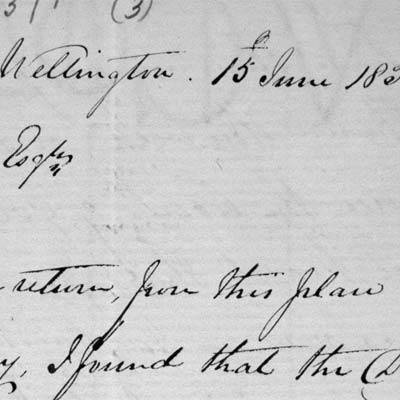 (3)
Wellington. 15 June 18
Esqre
return, from this plan
I found that the